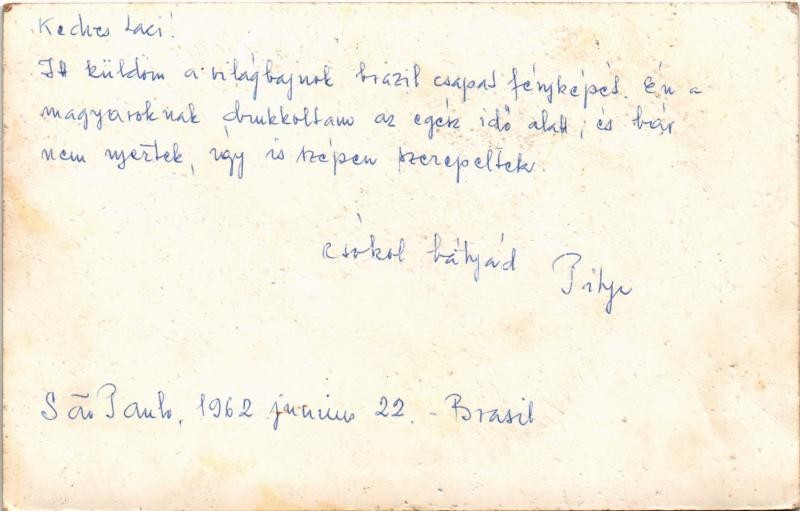 Kedves Laci!
Itt küldöm a világbajnok brazil csapat fényképét. Én a
magyaroknak drukkoltam az egész idő alatt, és bár
nem nyertek, így is szépen szerepeltek.
csókol bátyád Pitju
São Paulo, 1962 június 22. - Brasil